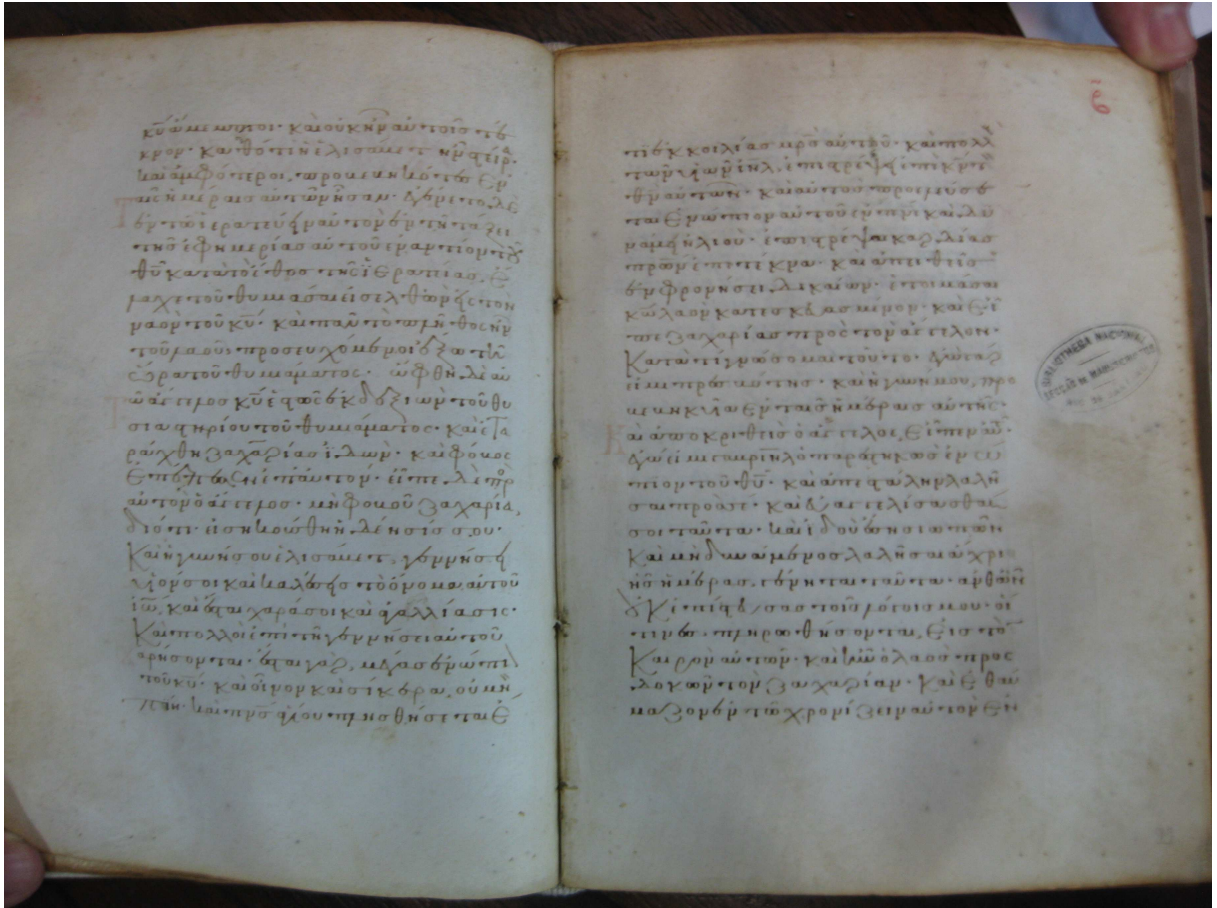 κῡ ἄμεμπτοι· καὶ οὐκ ἦν αὐτοῖς τέ
κνον· καθότι ἡ ἐλισάβετ ἦν στεῖρ
καὶ ἀμφότεροι προβεβηκότες ἐν
ταῖς ἡμέραις αὐτῶν ἦσαν· ἐγένετο δὲ
ἐν τῶ ἱερατεύειν αὐτὸν ἐν τῆ τάξει
τῆς ἐφημερίας αὐτοῦ ἐναντίον τοῦ
θῡ κατὰ τὸ ἔθος τῆς ἱερατίας, ἔ
λαχε τοῦ θυμιᾶσαι εἰσελθὼν εἰς τὸν
ναὸν τοῦ κῡ· καὶ πᾶν τὸ πλῆθος ἦν
τοῦ λαοῦ προσευχόμενοι ἔξω τῆ
ὥρα τοῦ θυμιάματος· ὤφθη δὲ αὐ
τῶ ἄγγελος κῡ ἑστὼς ἐκ δεξιῶν τοῦ θυ
σιαστηρίου τοῦ θυμιάματος· καὶ ἐτα
ράχθη ζαχαρίας ἰδών· καὶ φόβος
ἐπέπεσεν ἐπ' αὐτόν· εἶπε δὲ πρ
αὐτὸν ὁ ἄγγελος· μὴ φοβοῦ ζαχαρία,
διότι εἰσηκούσθη ἡ δέησίς σου·
Καὶ ἡ γυνή σου ἐλισάβετ, γεννήσει
υἱόν σοι καὶ καλέσεις τὸ ὄνομα αὐτοῦ
ἰω̄, καὶ ἔσται χαρά σοι καὶ ἀγαλλίασις·
Καὶ πολλοὶ ἐπὶ τῆ γεννήσει αὐτοῦ
χαρήσονται· ἔσται γὰρ μέγας ἐνώπι
τοῦ κῡ· καὶ οἶνον καὶ σίκερα οὐ μὴ
πίη· καὶ πνς̄ ἁγίου πλησθήσεται ἔ
τι ἐκ κοιλίας μρς̄ αὐτοῦ· καὶ πολλ
τῶν υἱῶν ιηλ̄, ἐπιστρέψει ἐπὶ κν̄ τ
θν̄ αὐτῶν· καὶ αὐτὸς προελεύσε
ται ἐνώπιον αὐτοῦ ἐν πνῑ καὶ δυ
νάμει ἠλιού· ἐπιστρέψαι καρδίας
πρων̄ ἐπὶ τέκνα· καὶ ἀπειθεῖς
ἐν φρονήσει δικαίων· ἑτοιμάσαι
κω̄ λαὸν κατεσκευασμένον· καὶ εἶ
πε ζαχαρίας πρὸς τὸν ἄγγελον·
Κατὰ τί γνώσομαι τοῦτο· ἐγὼ γάρ
εἰμι πρεσβύτης· καὶ ἡ γυνή μου, προ
βεβηκυῖα ἐν ταῖς ἡμέραις αὐτῆς·
Καὶ ἀποκριθεὶς ὁ ἄγγελος, εἶπεν αὐτ
ἐγώ εἰμι γαβριὴλ ὁ παρεστηκὼς ἐνώ
πιον τοῦ θῡ· καὶ ἀπεστάλην λαλῆ
σαι πρός σε· καὶ εὐαγγελίσασθαί
σοι ταῦτα· καὶ ἰδοὺ ἔση σιωπῶν
Καὶ μὴ δυνάμενος λαλῆσαι ἄχρι
ἧς ἡμέρας γένηται ταῦτα· ἀνθ' ὧν
οὐκ ἐπίστευσας τοῖς λόγοις μου· οἵ
τινες πληρωθήσονται εἰς τὸν
Καιρὸν αὐτῶν· καὶ ἦν ὁ λαὸς προσ
δοκῶν τὸν ζαχαρίαν· καὶ ἐθαύ
μαζον ἐν τῶ χρονίζειν αὐτὸν ἐν
BIBLIOTHECA NACIONAL
SECÇÃO DE MANUSCRIPTOS